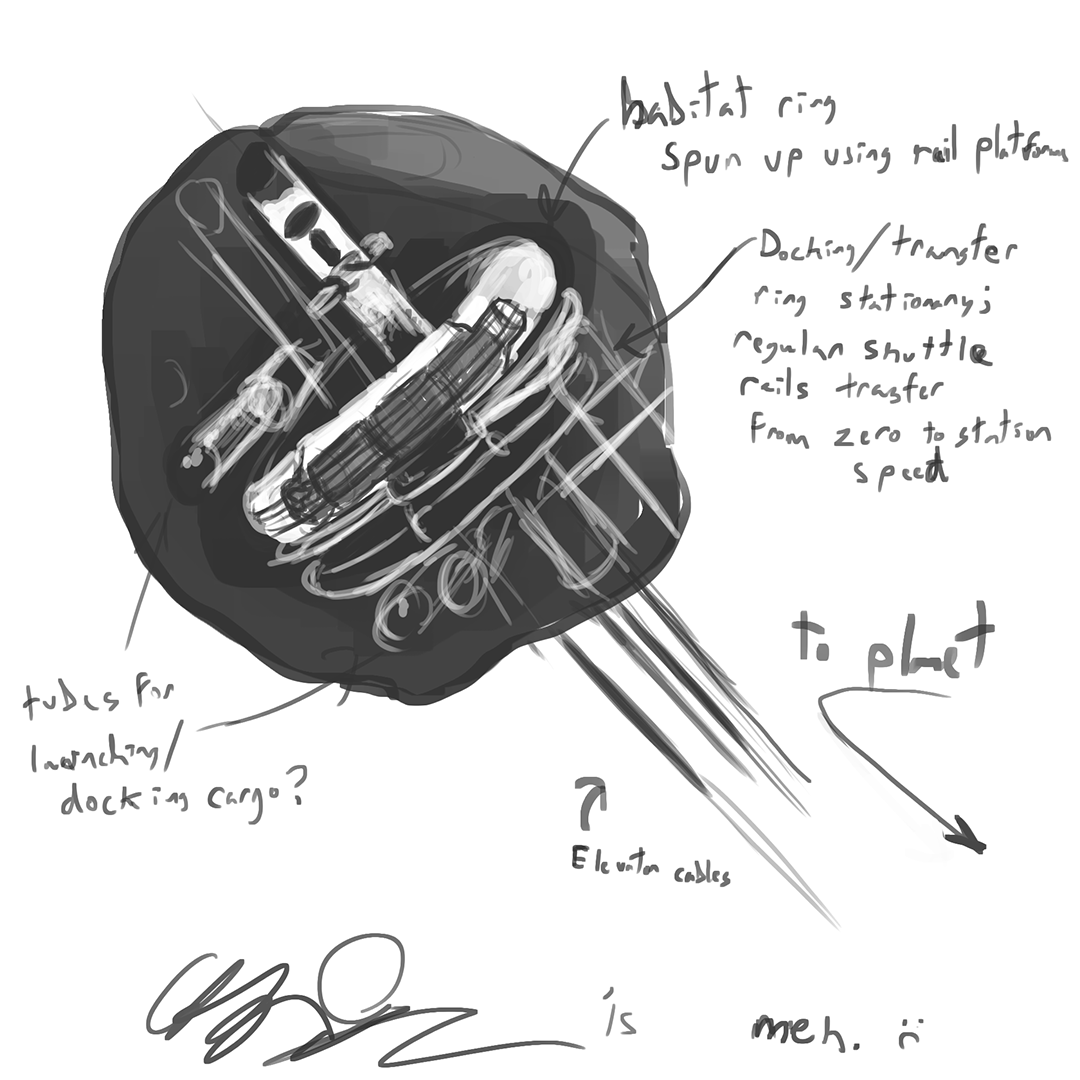 habitat ring
spun up using rail platforms
Docking/transfer
ring stationary;
regular shuttle
rails transfer
from zero to station
speed
to planet
tubes for
launching/
docking cargo?
Elevator cables
is meh. :(